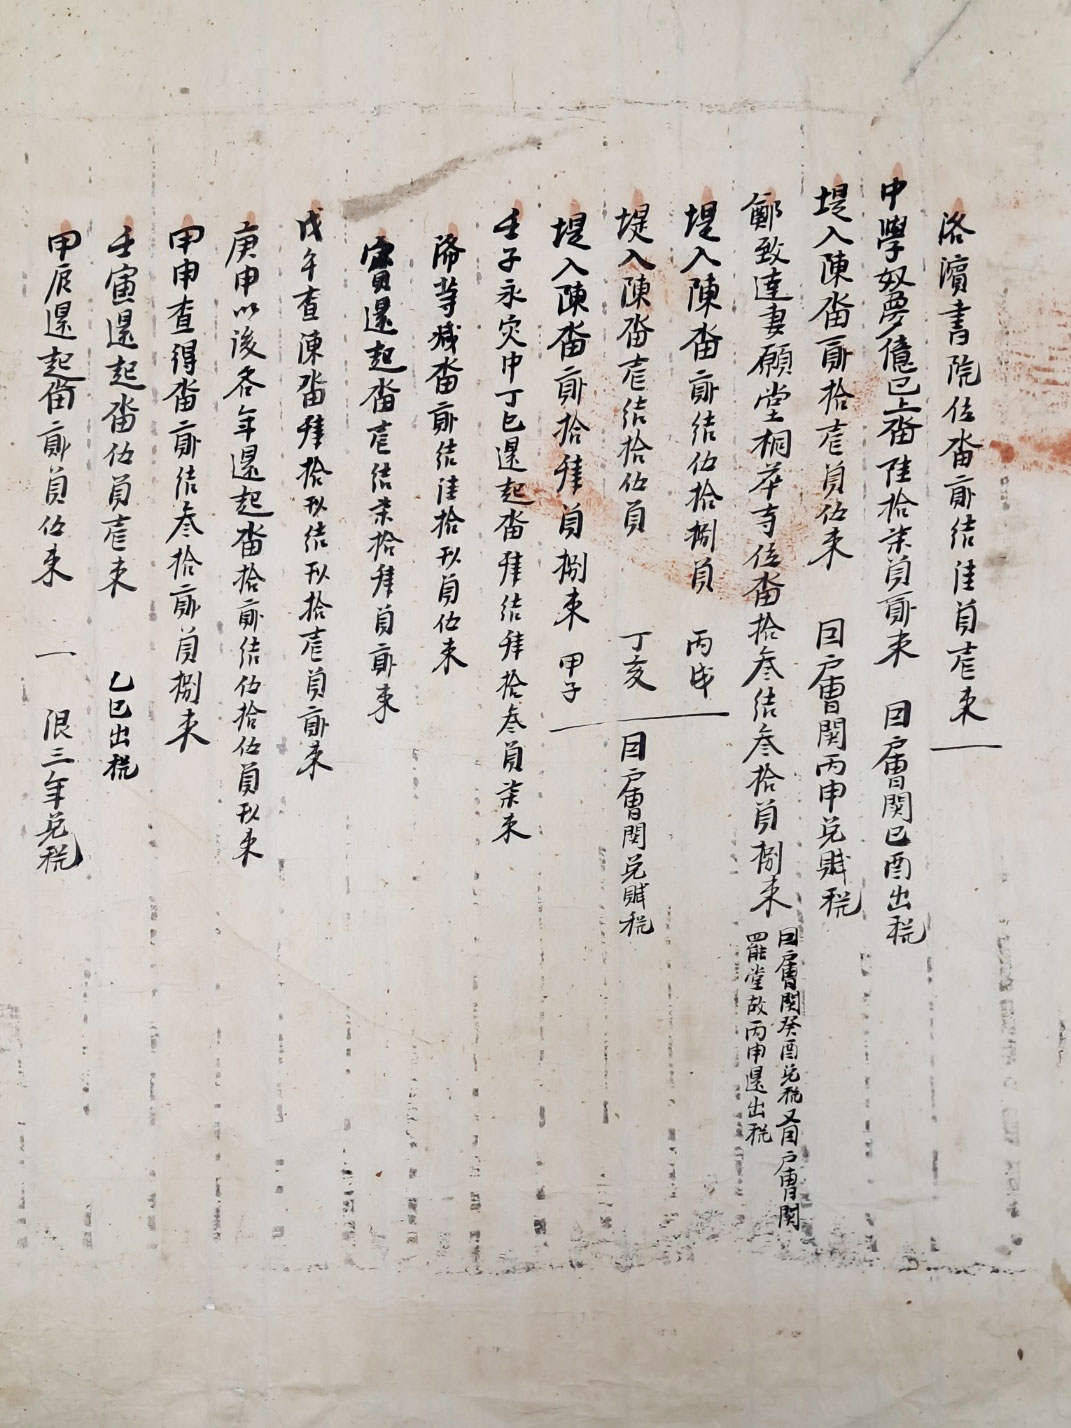 洛濱書院位畓貳結陸負壹束
中學奴夢億已上畓陸拾柒負貳束 因戶曹関己酉出稅
堤入陳畓貳拾壹負伍束 因戶曹関丙申免賦稅
鄭致達妻願堂桐華寺位畓拾叁結叁拾負捌束 因戶曹関癸酉免稅又因戶曹関
罷堂故丙申還出稅
堤入陳畓貳結伍拾捌負 丙戌
堤入陳畓壹結拾伍負 丁亥 因戶曹関免賦稅
堤入陳畓貳拾肆負捌束 甲子
壬子永灾中丁巳還起畓肆結肆拾叁負柒束
降等減畓貳結陸拾玖負伍束
實還起畓壹結柒拾肆負貳束
戊午查陳畓肆拾玖結玖拾壹負貳束
庚申以後各年還起畓拾貳結伍拾伍負玖束
甲申查得畓貳結叁拾貳負捌束
壬寅還起畓伍負壹束 乙巳出稅
甲辰還起畓貳負伍束 一 限三年免稅